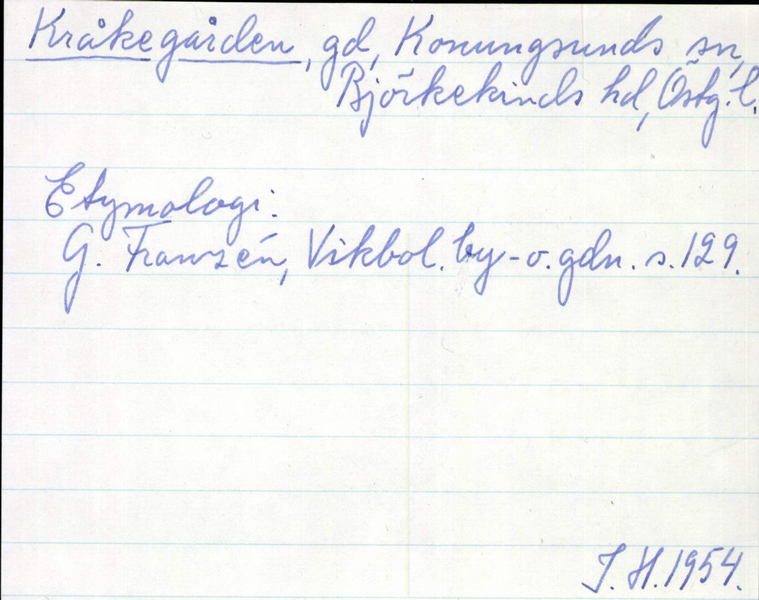 Kråkegården, gd, Konungsunds sn,
Björkekinds hd, Östg. l.
Etymologi:
G. Franzén, Vikbol. by- o. gdn. s. 129.
J. H. 1954.